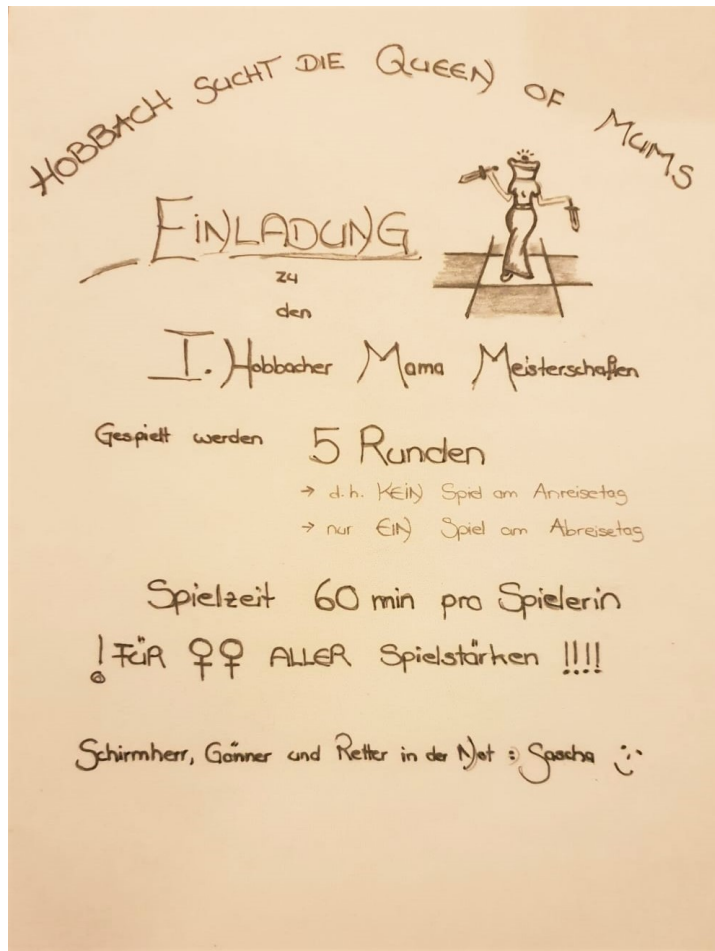 HOBBACH SUCHT DIE QUEEN OF MUMS
EINLADUNG
zu
den
I. Hobbacher Mama Meisterschaften
Gespielt werden 5 Runden
→ d.h. KEIN Spiel am Anreisetag
→ nur EIN Spiel am Abreisetag
Spielzeit 60 min pro Spielerin
! FÜR ♀♀ ALLER Spielstärken !!!!
Schirmherr, Gönner und Retter in der Not : Sascha :-)